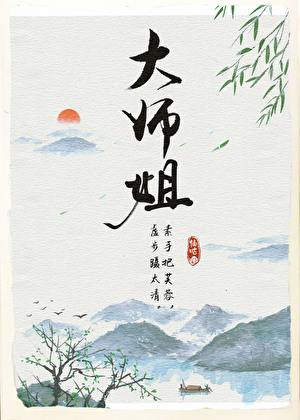 大师姐
素手把芙蓉
虚步蹑太清